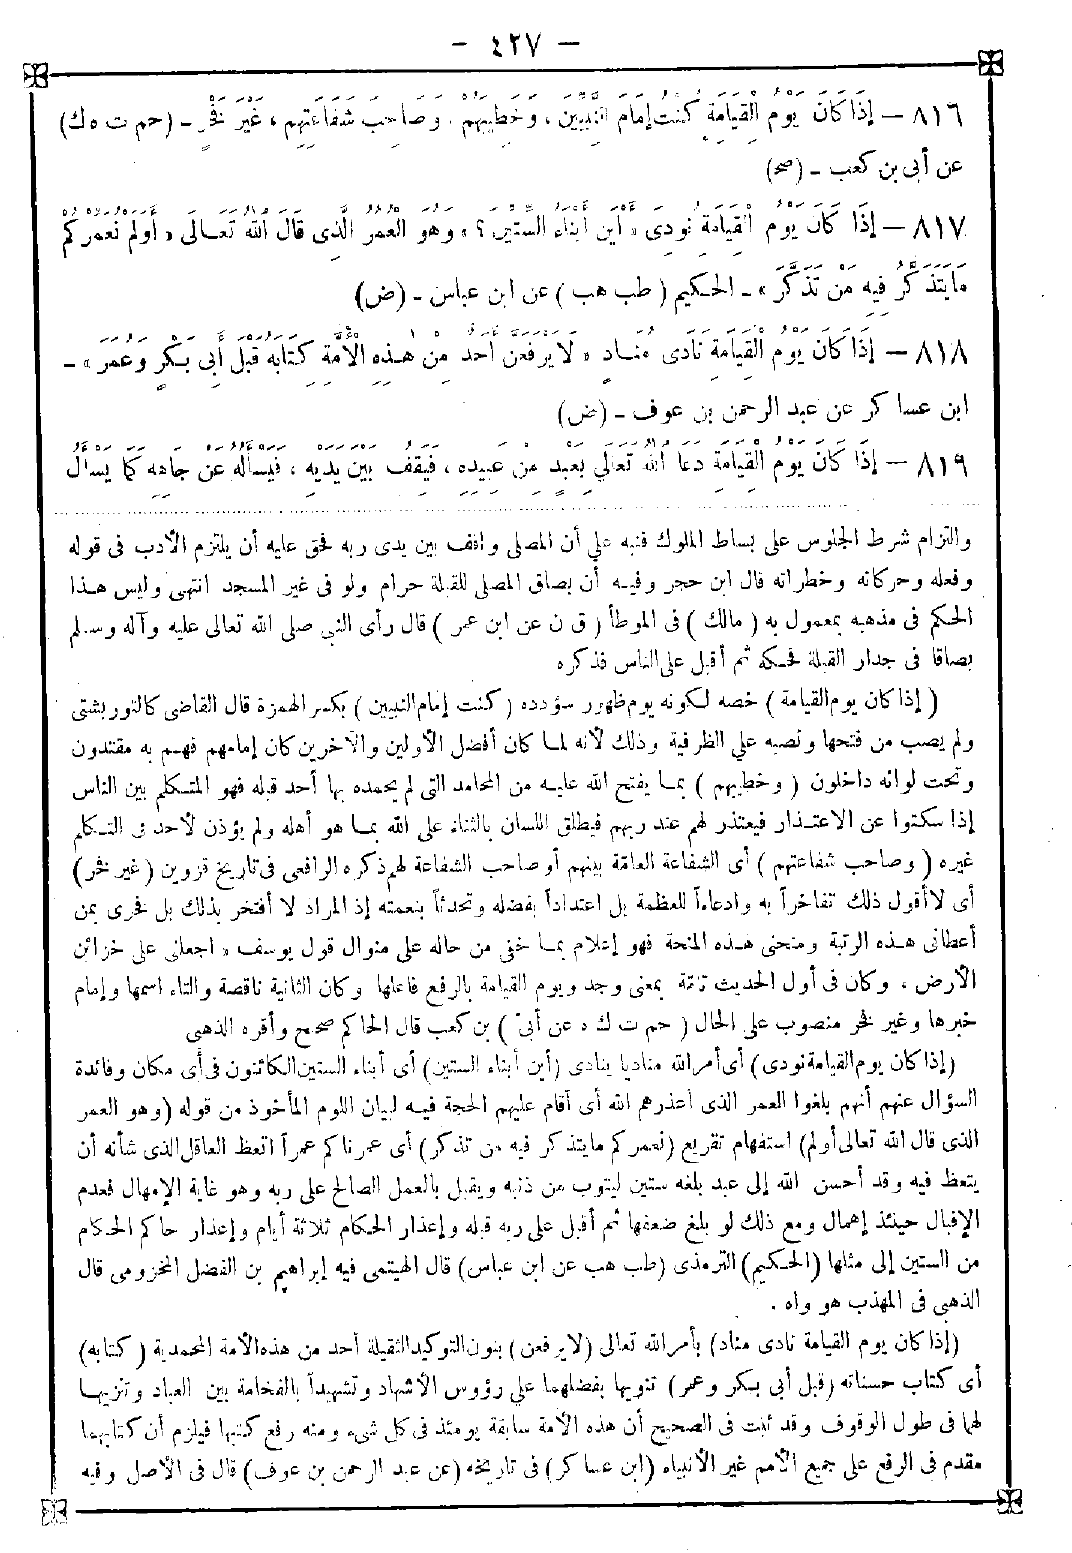 — ٤٢٧ —
٨١٦ — إِذَا كَانَ يَوْمُ الْقِيَامَةِ كُنْتُ إِمَامَ النَّبِيِّينَ، وَخَطِيبَهُمْ، وَصَاحِبَ شَفَاعَتِهِمْ، غَيْرَ فَخْرٍ - (حم ت ه ك)
عن أبى بن كعب - (صح)
٨١٧ — إِذَا كَانَ يَوْمُ الْقِيَامَةِ نُودِىَ « أَيْنَ أَبْنَاءُ السِّتِّينَ؟ » وَهُوَ الْعُمُرُ الَّذِى قَالَ اللهُ تَعَالَى « أَوَلَمْ نُعَمِّرْكُمْ
مَا يَتَذَكَّرُ فِيهِ مَنْ تَذَكَّرَ » - الحكيم ( طب هب ) عن ابن عباس - (ض)
٨١٨ — إِذَا كَانَ يَوْمُ الْقِيَامَةِ نَادَى مُنَادٍ « لَا يَرْفَعَنَّ أَحَدٌ مِنْ هٰذِهِ الْأُمَّةِ كِتَابَهُ قَبْلَ أَبِى بَكْرٍ وَعُمَرَ » -
ابن عساكر عن عبد الرحمن بن عوف - (ض)
٨١٩ — إِذَا كَانَ يَوْمُ الْقِيَامَةِ دَعَا اللهُ تَعَالَى بِعَبْدٍ مِنْ عَبِيدِهِ، فَيَقِفُ بَيْنَ يَدَيْهِ، فَيَسْأَلُهُ عَنْ جَاهِهِ كَمَا يَسْأَلُ
والتزام شرط الجلوس على بساط الملوك فنبه على أن المصلى واقف بين يدى ربه فحق عليه أن يلتزم الأدب فى قوله
وفعله وحركاته وخطراته قال ابن حجر وفيه أن بصاق المصلى للقبلة حرام ولو فى غير المسجد انتهى وليس هذا
الحكم فى مذهبه بمعمول به ( مالك ) فى الموطأ ( ق ن عن ابن عمر ) قال رأى النبى صلى الله تعالى عليه وآله وسلم
بصاقا فى جدار القبلة فحكه ثم أقبل على الناس فذكره
( إذا كان يوم القيامة ) خصه لكونه يوم ظهور سؤدده ( كنت إمام النبيين ) بكسر الهمزة قال القاضى كالتوربشتى
ولم يصب من فتحها ونصبه على الظرفية وذلك لأنه لما كان أفضل الأولين والآخرين كان إمامهم فهم به مقتدون
وتحت لوائه داخلون ( وخطيبهم ) بما يفتح الله عليه من المحامد التى لم يحمده بها أحد قبله فهو المتكلم بين الناس
إذا سكتوا عن الاعتذار فيعتذر لهم عند ربهم فيطلق اللسان بالثناء على الله بما هو أهله ولم يؤذن لأحد فى التكلم
غيره ( وصاحب شفاعتهم ) أى الشفاعة العامة بينهم أو صاحب الشفاعة لهم ذكره الرافعى فى تاريخ قزوين (غير فخر)
أى لا أقول ذلك تفاخراً به وادعاءاً للعظمة بل اعتداداً بفضله وتحدثاً بنعمته إذ المراد لا أفتخر بذلك بل فخرى بمن
أعطانى هذه الرتبة ومنحنى هذه المنحة فهو إعلام بما خفى من حاله على منوال قول يوسف « اجعلنى على خزائن
الأرض » وكان فى أول الحديث تامّة بمعنى وجد ويوم القيامة بالرفع فاعلها وكان الثانية ناقصة والتاء اسمها وإمام
خبرها وغير فخر منصوب على الحال ( حم ت ك ه عن أبىّ ) بن كعب قال الحاكم صحيح وأقره الذهبى
(إذا كان يوم القيامة نودى) أى أمر الله مناديا ينادى (أين أبناء الستين) أى أبناء الستين الكائنون فى أى مكان وفائدة
السؤال عنهم أنهم بلغوا العمر الذى أعذرهم الله أى أقام عليهم الحجة فيه لبيان اللوم المأخوذ من قوله (وهو العمر
الذى قال الله تعالى أولم) استفهام تقريع (نعمركم ما يتذكر فيه من تذكر) أى عمرناكم عمراً اتعظ العاقل الذى شأنه أن
يتعظ فيه وقد أحسن الله إلى عبد بلغه ستين ليتوب من ذنبه ويقبل بالعمل الصالح على ربه وهو غاية الإمهال فعدم
الإقبال حينئذ إهمال ومع ذلك لو بلغ ضعفها ثم أقبل على ربه قبله وإعذار الحكام ثلاثة أيام وإعذار حاكم الحكام
من الستين إلى مثلها (الحكيم) الترمذى (طب هب عن ابن عباس) قال الهيتمى فيه إبراهيم بن الفضل المخزومى قال
الذهبى فى المهذب هو واه .
(إذا كان يوم القيامة نادى مناد) بأمر الله تعالى (لا يرفعن) بنون التوكيد الثقيلة أحد من هذه الأمة المحمدية ( كتابه)
أى كتاب حسناته (قبل أبى بكر وعمر) تنويها بفضلهما على رؤوس الأشهاد وتشهيداً بالفخامة بين العباد وتنزيها
لهما فى طول الوقوف وقد ثبت فى الصحيح أن هذه الأمة سابقة يومئذ فى كل شىء ومنه رفع كتبها فيلزم أن كتابهما
مقدم فى الرفع على جميع الأمم غير الأنبياء (ابن عساكر) فى تاريخه (عن عبد الرحمن بن عوف) قال فى الأصل وفيه